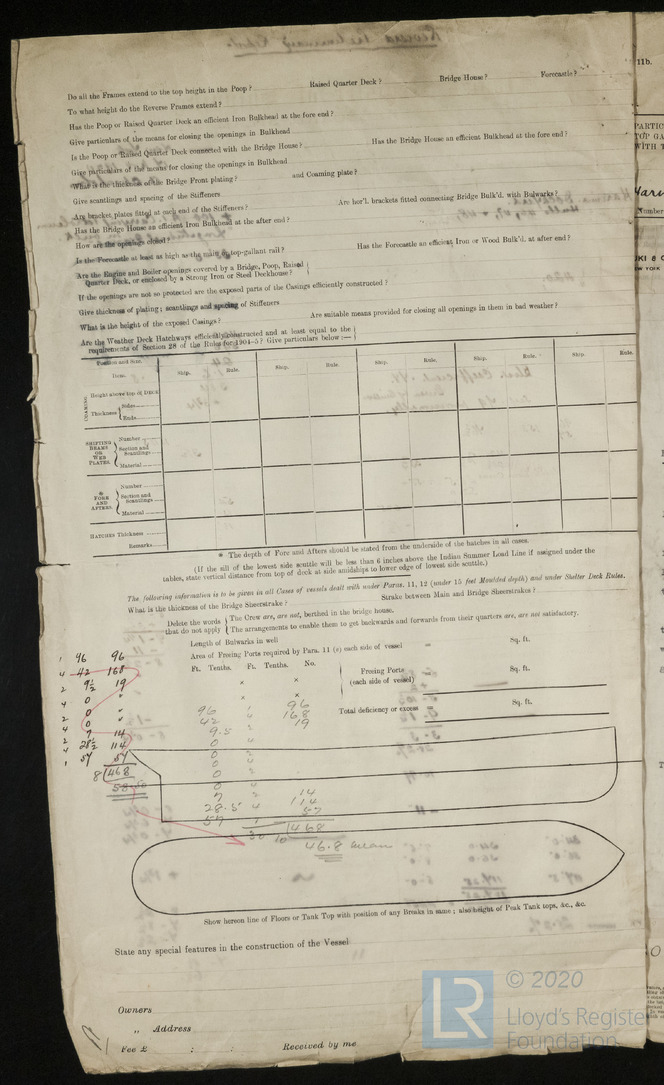 Do all the Frames extend to the top height in the Poop? Raised Quarter Deck? Bridge House? Forecastle?
To what height do the Reverse Frames extend?
Has the Poop or Raised Quarter Deck an efficient Iron Bulkhead at the fore end?
Give particulars of the means for closing the openings in Bulkhead
Is the Poop or Raised Quarter Deck connected with the Bridge House? Has the Bridge House an efficient Bulkhead at the fore end?
Give particulars of the means for closing the openings in Bulkhead
What is the thickness of the Bridge Front plating? and Coaming plate?
Give scantlings and spacing of the Stiffeners
Are bracket plates fitted at each end of the Stiffeners? Are hor'l. brackets fitted connecting Bridge Bulk'd. with Bulwarks?
Has the Bridge House an efficient Iron Bulkhead at the after end?
How are the openings closed?
Is the Forecastle at least as high as the main or top-gallant rail? Has the Forecastle an efficient Iron or Wood Bulk'd. at after end?
Are the Engine and Boiler openings covered by a Bridge, Poop, Raised
Quarter Deck, or enclosed by a Strong Iron or Steel Deckhouse?
If the openings are not so protected are the exposed parts of the Casings efficiently constructed?
Give thickness of plating; scantlings and spacing of Stiffeners
What is the height of the exposed Casings? Are suitable means provided for closing all openings in them in bad weather?
Are the Weather Deck Hatchways efficiently constructed and at least equal to the
requirements of Section 28 of the Rules for 1904-5? Give particulars below:—
Position and Size.
Item. Ship. Rule. Ship. Rule. Ship. Rule. Ship. Rule. Ship. Rule.
COAMING
Height above top of DECK
Thickness Sides
Ends
SHIFTING BEAMS OR WEB PLATES.
Number
Section and Scantlings
Material
* FORE AND AFTERS.
Number
Section and Scantlings
Material
HATCHES Thickness
Remarks
* The depth of Fore and Afters should be stated from the underside of the hatches in all cases.
(If the sill of the lowest side scuttle will be less than 6 inches above the Indian Summer Load Line if assigned under the
tables, state vertical distance from top of deck at side amidships to lower edge of lowest side scuttle.)
The following information is to be given in all Cases of vessels dealt with under Paras. 11, 12 (under 15 feet Moulded depth) and under Shelter Deck Rules.
What is the thickness of the Bridge Sheerstrake? Strake between Main and Bridge Sheerstrakes?
Delete the words that do not apply
The Crew are, are not, berthed in the bridge house.
The arrangements to enable them to get backwards and forwards from their quarters are, are not satisfactory.
Length of Bulwarks in well
Area of Freeing Ports required by Para. 11 (e) each side of vessel = Sq. ft.
Ft. Tenths. Ft. Tenths. No.
× ×
× ×
Freeing Ports (each side of vessel) = Sq. ft.
Total deficiency or excess = Sq. ft.
1 96 96
4 42 168
2 9½ 19
4 0 "
2 0 "
4 0 "
2 7 14
4 28½ 114
1 57 57
8 468
58.50
96 1 96
42 4 168
9.5 2 19
0 4
0 2
0 4
0 2
0 4
7 2 14
28.5 4 114
57 1 57
30 10 468
46.8 mean
Show hereon line of Floors or Tank Top with position of any Breaks in same; also height of Peak Tank tops, &c., &c.
State any special features in the construction of the Vessel
Owners
„ Address
Fee £ : : Received by me
11b.
PARTIC
TOP GA
WITH T
Number
UKI & C
EW YORK
© 2020
LR
Lloyd's Register
Foundation